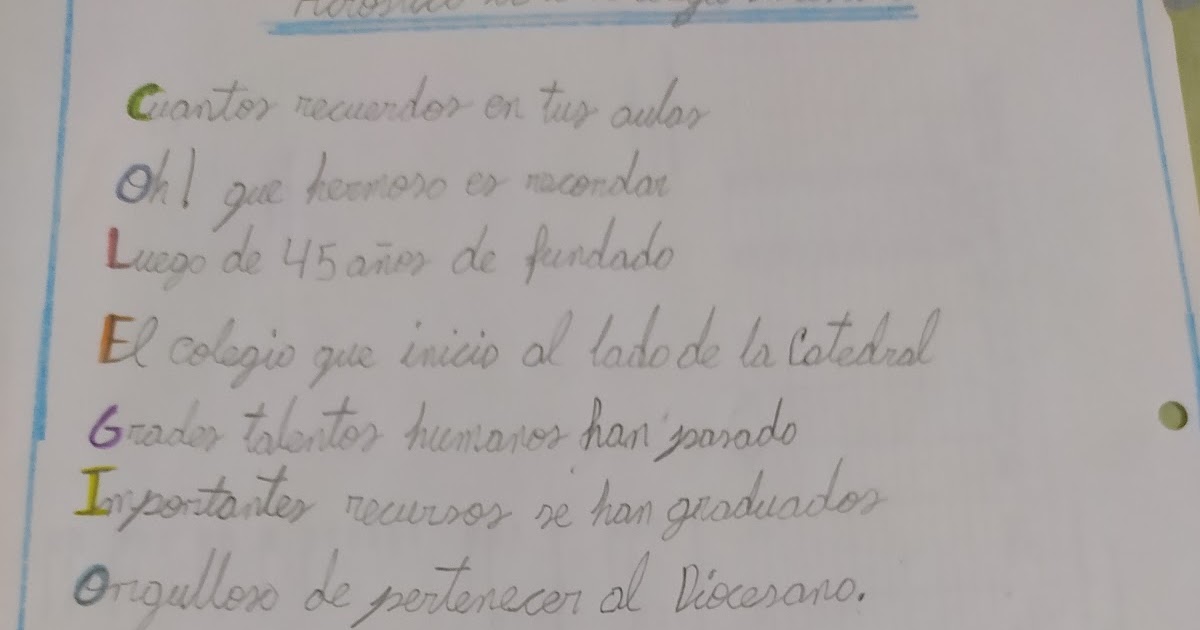 Cuantos recuerdos en tus aulas
Oh! que hermoso es recordar
Luego de 45 años de fundado
El colegio que inicio al lado de la Catedral
Grades talentos humanos han pasado
Importantes recursos se han graduados
Orgulloso de pertenecer al Diocesano.